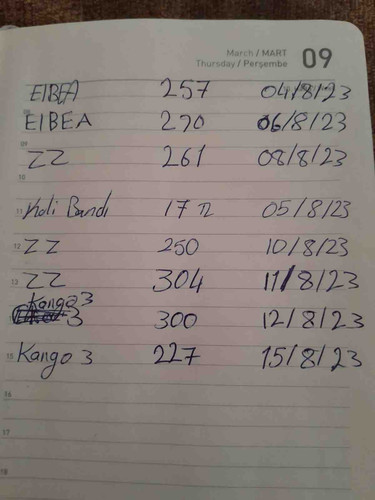 March / MART
Thursday / Perşembe
09
EIBEA 257 04/8/23
EIBEA 270 06/8/23
09
ZZ 261 08/8/23
10
11 Koli Bandı 17 TL 05/8/23
12 ZZ 250 10/8/23
13 ZZ 304 11/8/23
Kango 3
3 300 12/8/23
15 Kango 3 227 15/8/23
16
17
18